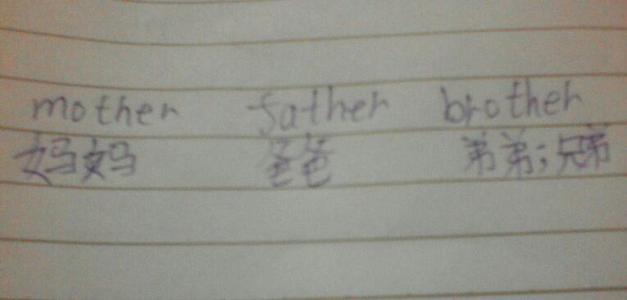 mother father brother
妈妈 爸爸 弟弟；兄弟